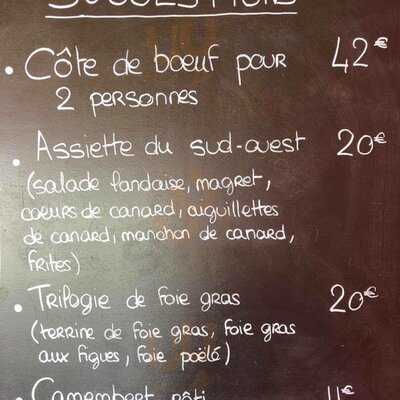 SUGGESTIONS
• Côte de boeuf pour 42€
2 personnes
• Assiette du sud-ouest 20€
(salade landaise, magret,
coeurs de canard, aiguillettes
de canard, manchon de canard,
frites)
• Trilogie de foie gras 20€
(terrine de foie gras, foie gras
aux figues, foie poêlé)
• Camembert rôti 11€